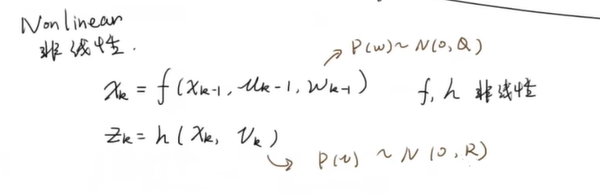 Nonlinear
非线性.
P(w)~N(0,Q)
xₖ = f(xₖ₋₁, uₖ₋₁, wₖ₋₁) f, h 非线性
zₖ = h(xₖ, vₖ)
P(v) ~ N(0,R)